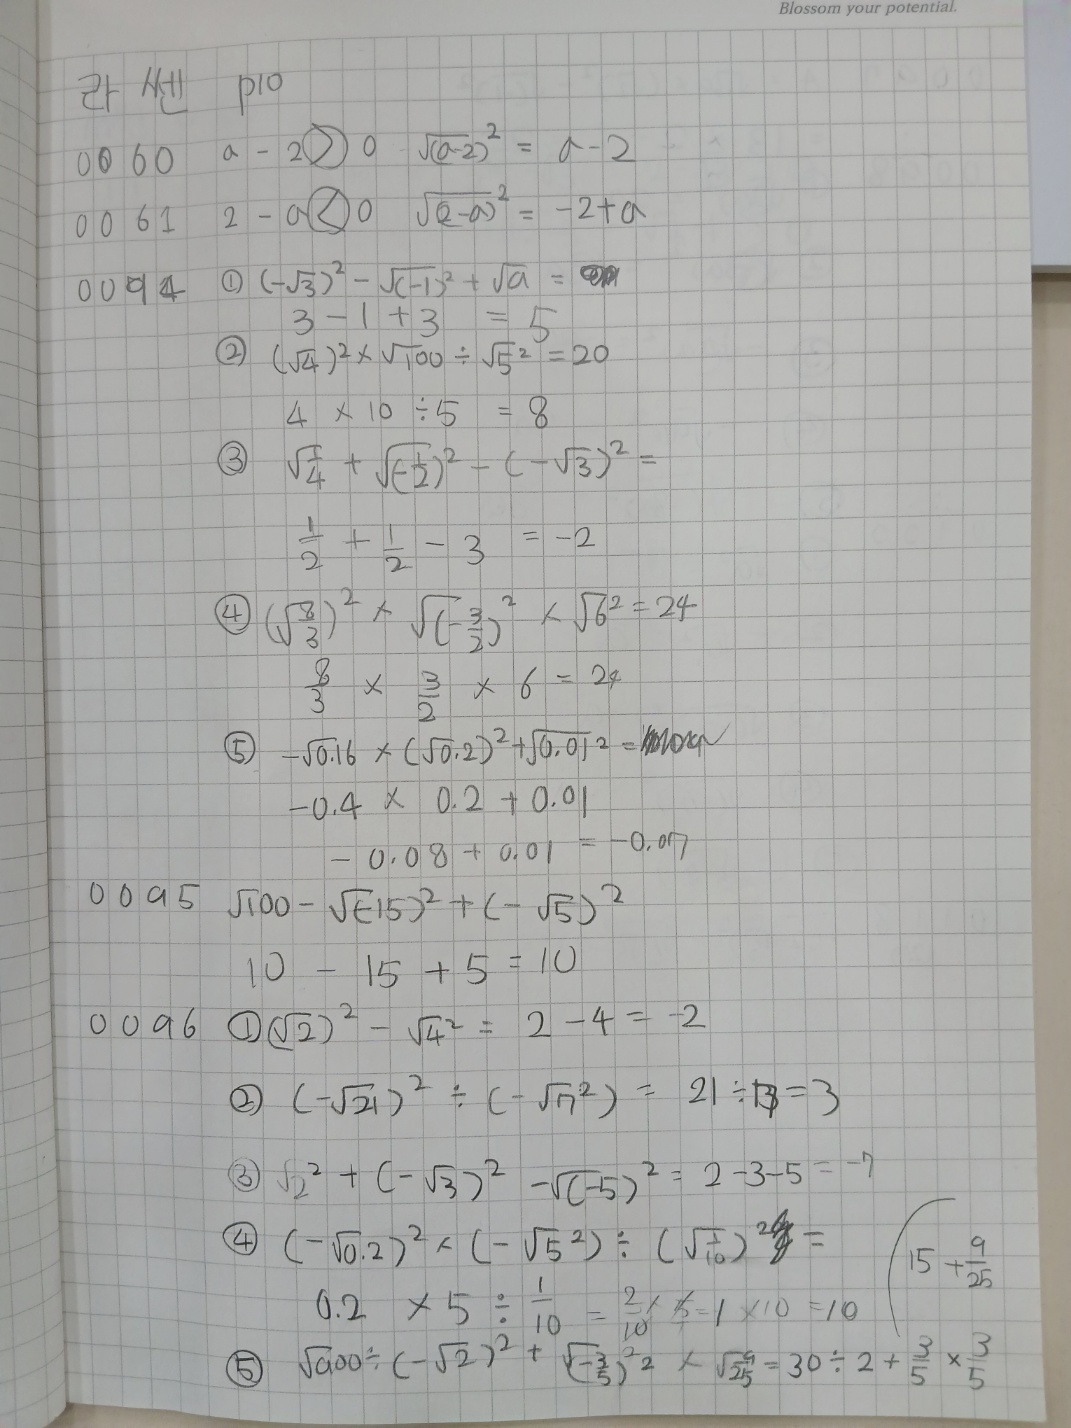 Blossom your potential.
라 쎈 p10
0060 a - 2 > 0 √(a-2)² = a - 2
0061 2 - a < 0 √(2-a)² = -2+a
0094 ① (-√3)² - √(-1)² + √9 =
3 - 1 + 3 = 5
② (√4)² × √100 ÷ √5² = 20
4 × 10 ÷ 5 = 8
③ √1/4 + √(-1/2)² - (-√3)² =
1/2 + 1/2 - 3 = -2
④ (√8/3)² × √(-3/2)² × √6² = 24
8/3 × 3/2 × 6 = 24
⑤ -√0.16 × (√0.2)² + √0.01² =
-0.4 × 0.2 + 0.01
- 0.08 + 0.01 = -0.07
0095 √100 - √(-15)² + (-√5)²
10 - 15 + 5 = 10
0096 ① (√2)² - √4² = 2 - 4 = -2
② (-√21)² ÷ (-√7²) = 21 ÷ = 3
③ √2² + (-√3)² - √(-5)² = 2-3-5 = -7
④ (-√0.2)² × (-√5²) ÷ (√1/10)² =
0.2 × 5 ÷ 1/10 = 2/10 × 5 = 1 × 10 = 10
15 + 9/25
⑤ √900 ÷ (-√2)² + √(-3/5)² × √9/25 = 30 ÷ 2 + 3/5 × 3/5